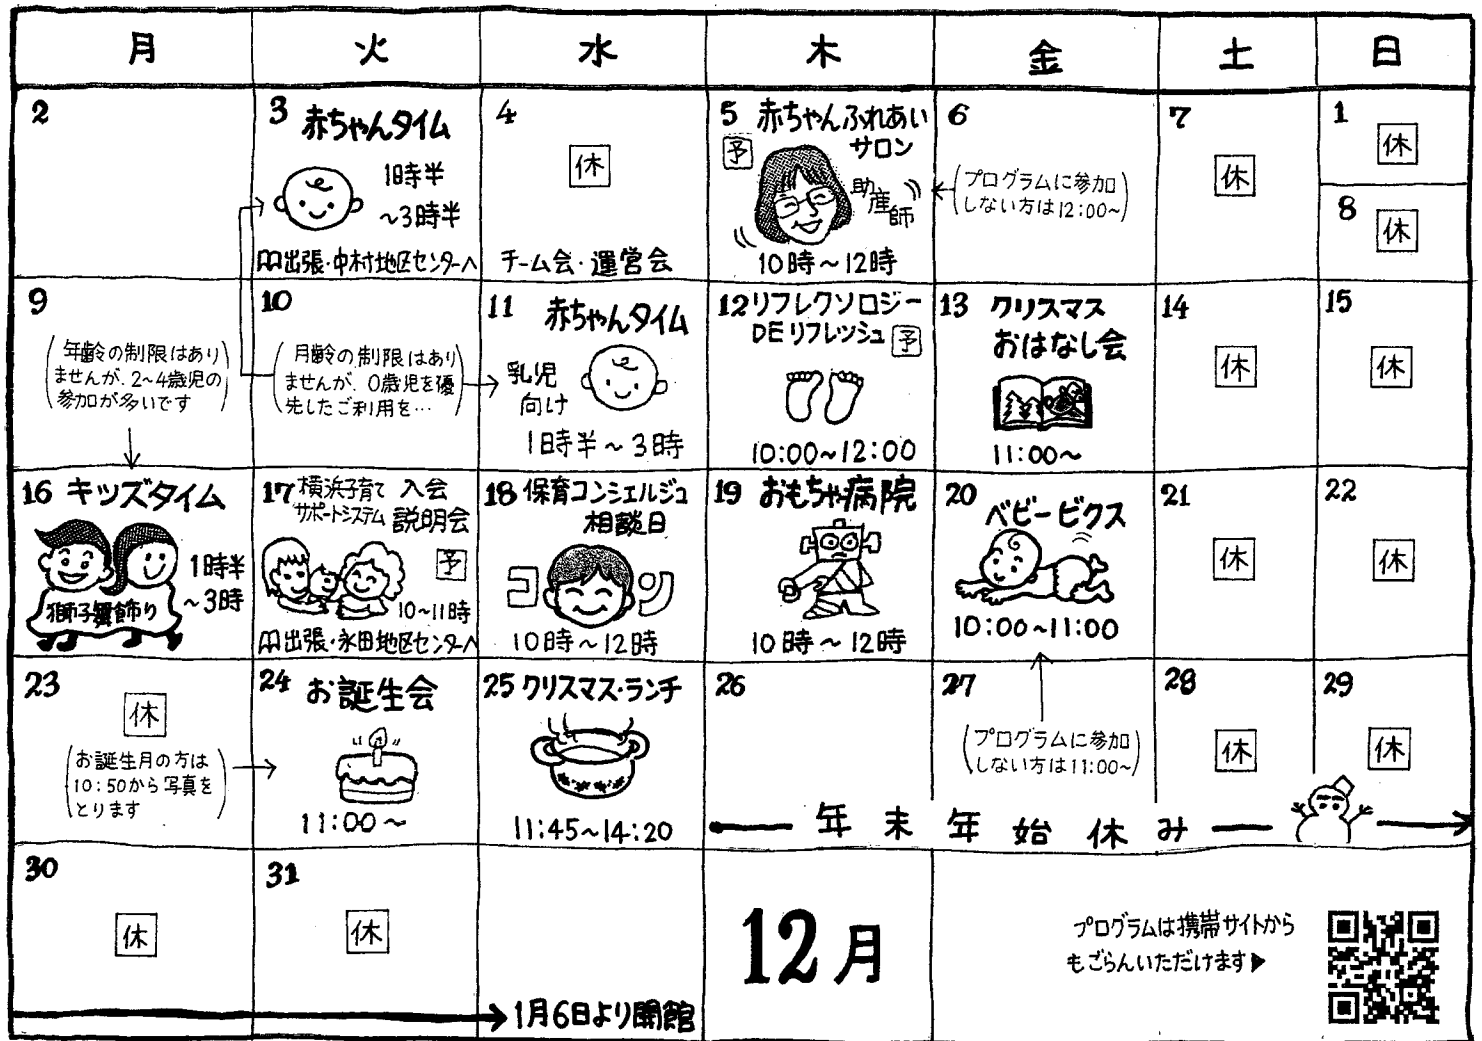 月 火 水 木 金 土 日
2
3 赤ちゃんタイム
1時半
～3時半
出張・中村地区センターへ
4
休
チーム会・運営会
5 赤ちゃんふれあい
サロン
予
助産師
10時～12時
6
(プログラムに参加
しない方は12:00~)
7
休
1
休
8
休
9
(年齢の制限はあり
ませんが、2~4歳児の
参加が多いです)
10
(月齢の制限はあり
ませんが、0歳児を優
先したご利用を…)
11 赤ちゃんタイム
乳児
向け
1時半～3時
12 リフレクソロジー
DEリフレッシュ 予
10:00~12:00
13 クリスマス
おはなし会
11:00~
14
休
15
休
16 キッズタイム
1時半
～3時
獅子舞飾り
17 横浜子育て 入会
サポートシステム 説明会
予
10~11時
出張・永田地区センターへ
18 保育コンシェルジュ
相談日
コン
10時～12時
19 おもちゃ病院
10時～12時
20 ベビービクス
10:00~11:00
21
休
22
休
23
休
(お誕生月の方は
10:50から写真を
とります)
24 お誕生会
11:00~
25 クリスマス・ランチ
11:45~14:20
26
27
(プログラムに参加
しない方は11:00~)
28
休
29
休
年末年始休み
30
休
31
休
1月6日より開館
12月
プログラムは携帯サイトから
もごらんいただけます▶